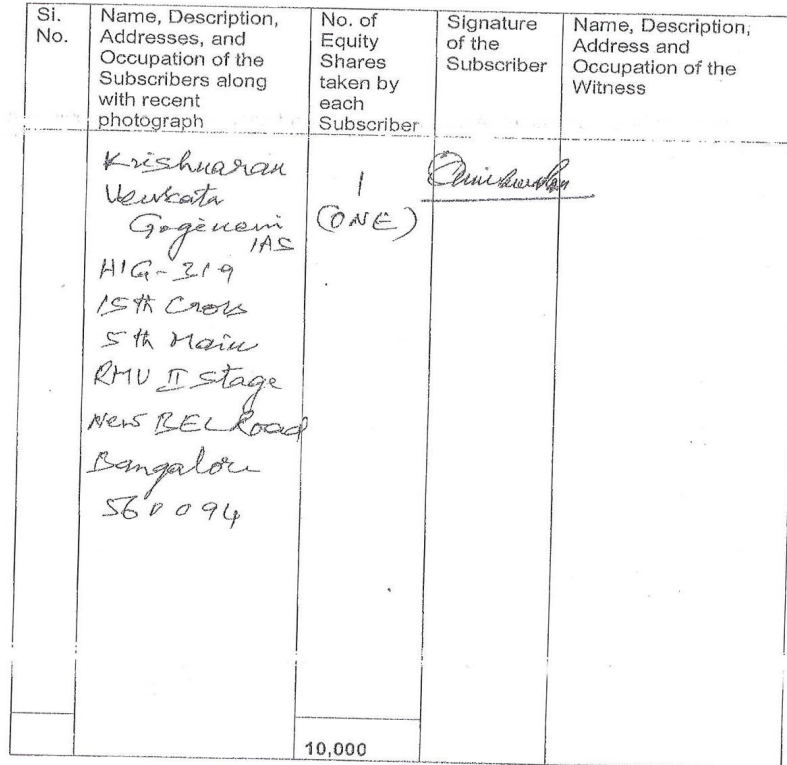 Si.
No.
Name, Description,
Addresses, and
Occupation of the
Subscribers along
with recent
photograph
No. of
Equity
Shares
taken by
each
Subscriber
Signature
of the
Subscriber
Name, Description,
Address and
Occupation of the
Witness
Krishnaran
Venkata
IAS
HIG-319
15th Cross
5th Main
RMV II Stage
New BEL Road
Bangalore
560094
1
(ONE)
10,000